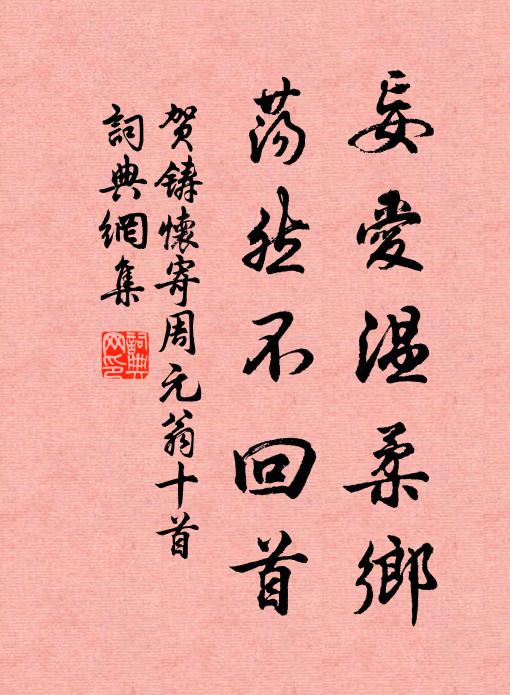 妄愛溫柔鄉
蕩然不回首
贺鑄懷寄周元翁十首
詞典網集
詞典网印